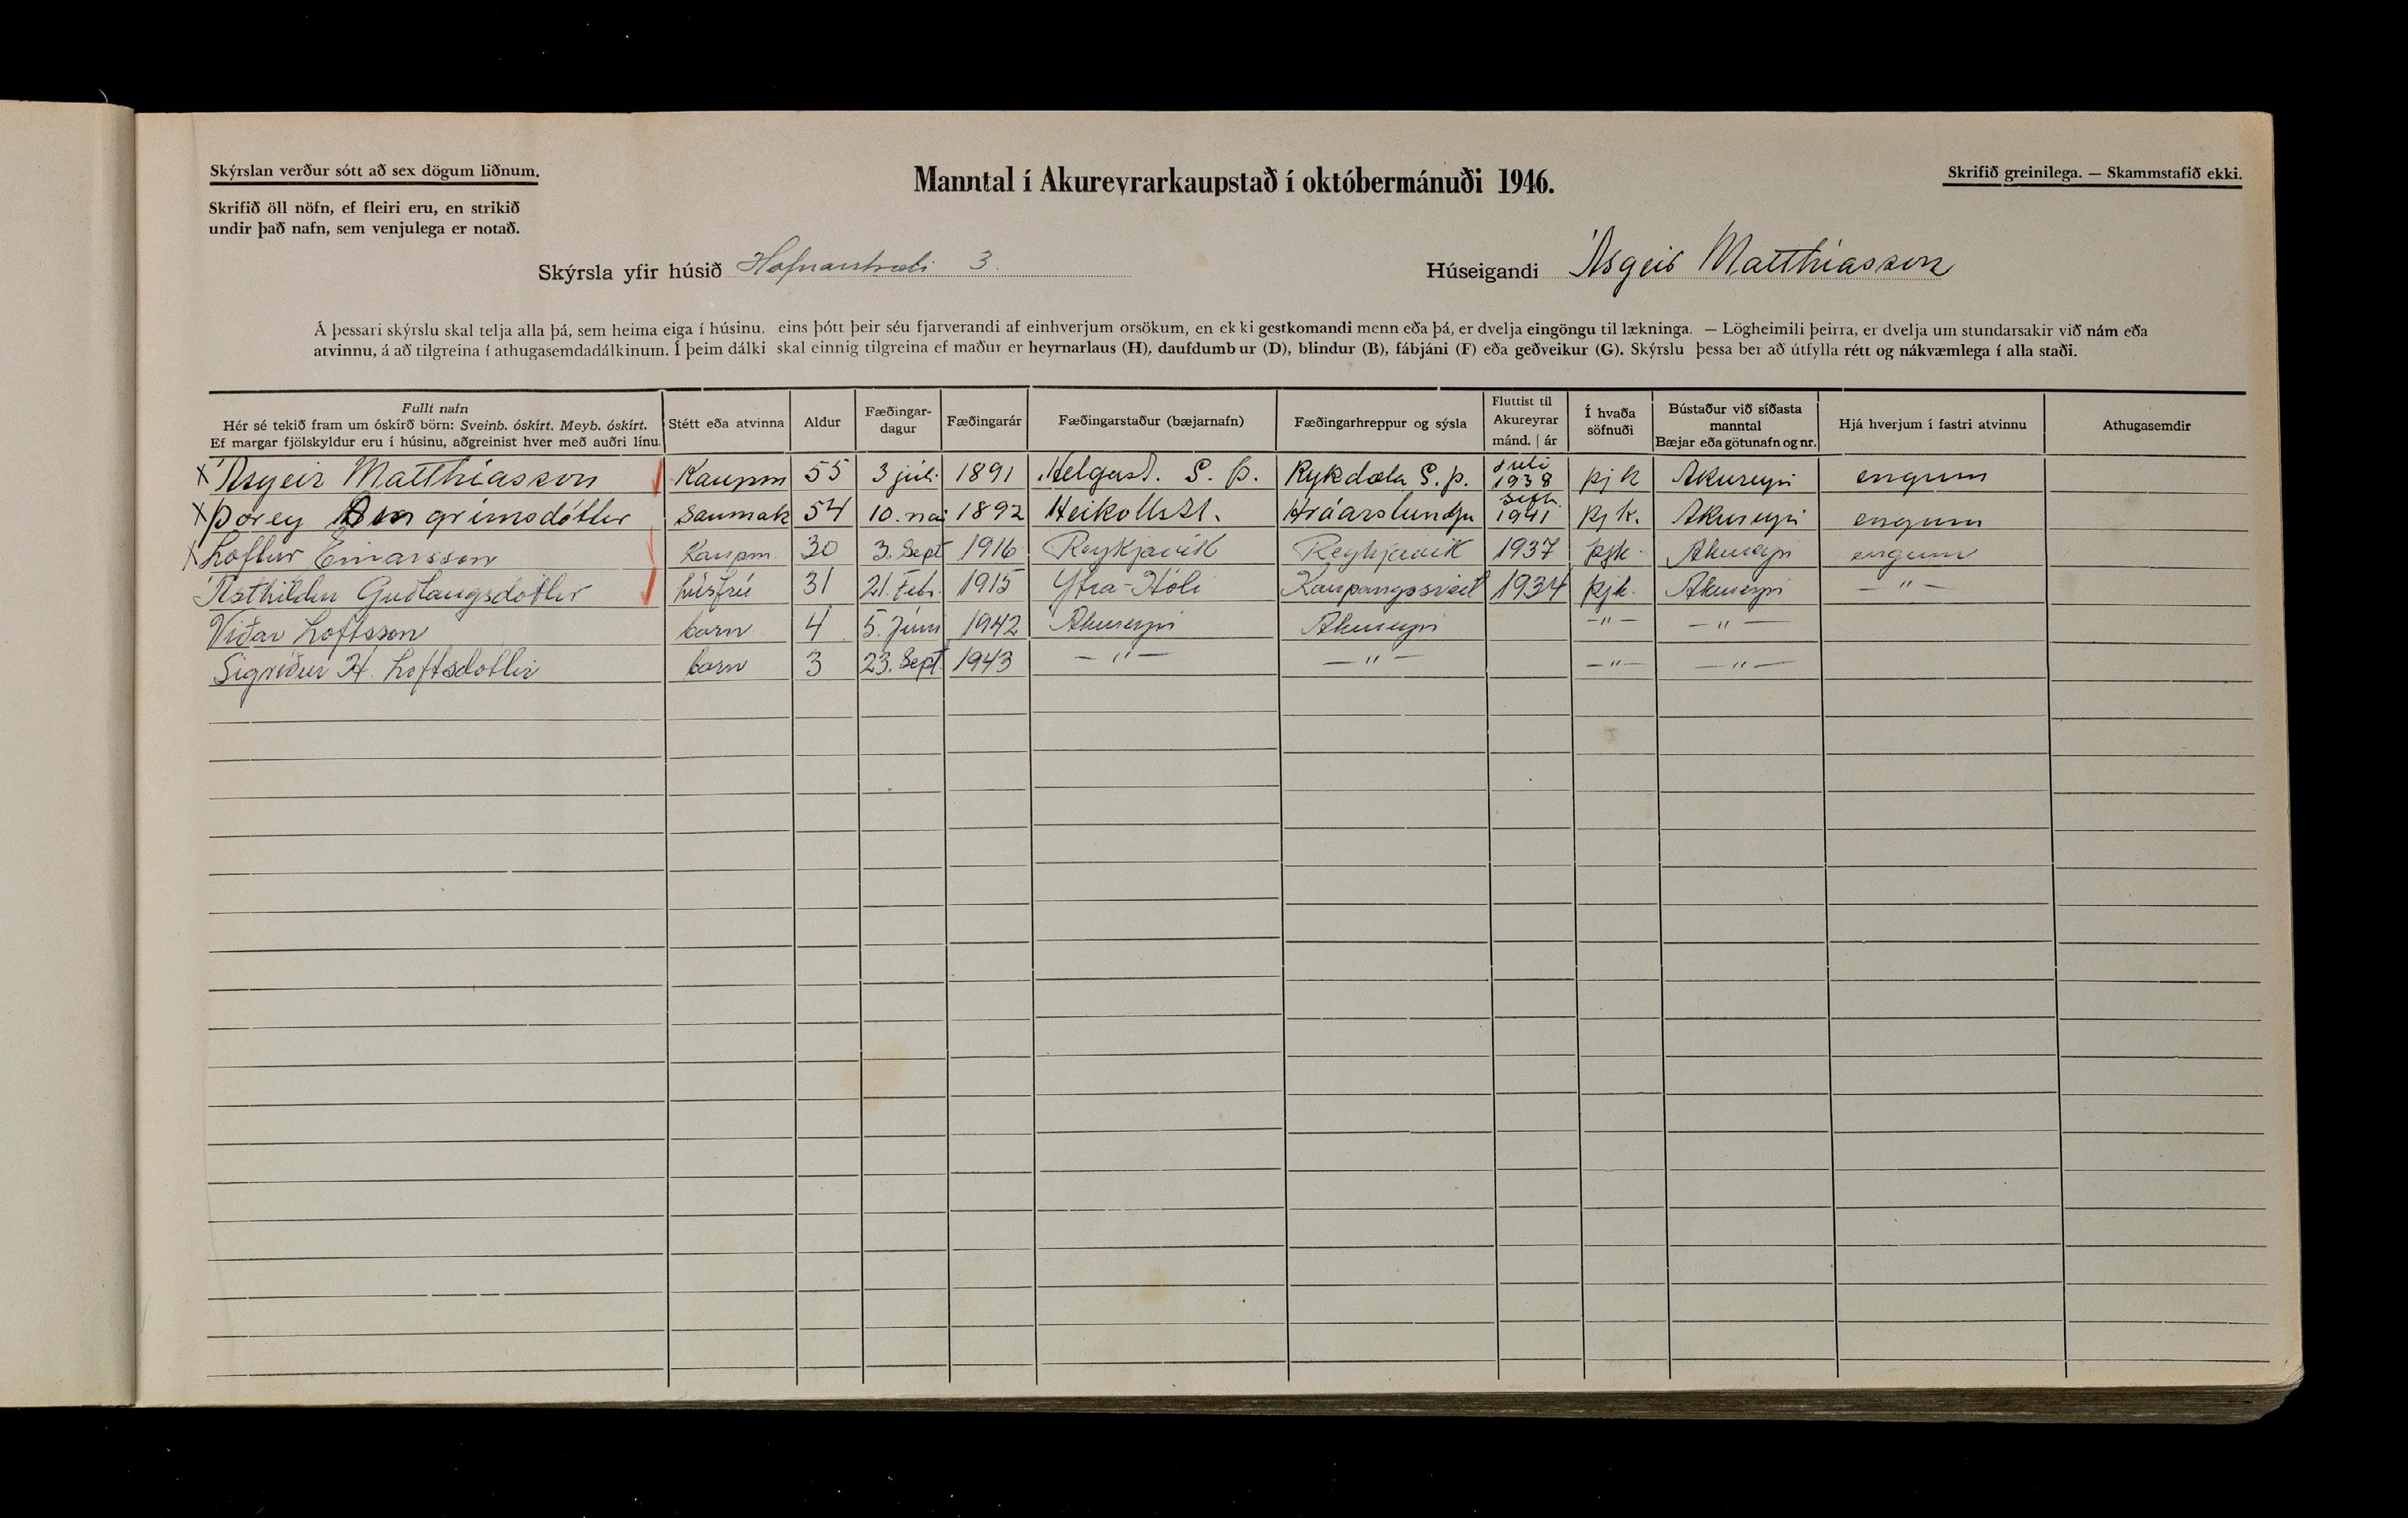 Skýrslan verður sótt að sex dögum liðnum.
Manntal í Akureyrarkaupstað í októbermánuði 1946.
Skrifið greinilega. — Skammstafið ekki.
Skrifið öll nöfn, ef fleiri eru, en strikið
undir það nafn, sem venjulega er notað.
Skýrsla yfir húsið Hafnarstræti 3.
Húseigandi Ásgeir Matthíasson
Á þessari skýrslu skal telja alla þá, sem heima eiga í húsinu, eins þótt þeir séu fjarverandi af einhverjum orsökum, en ekki gestkomandi menn eða þá, er dvelja eingöngu til lækninga. — Lögheimili þeirra, er dvelja um stundarsakir við nám eða
atvinnu, á að tilgreina í athugasemdadálkinum. Í þeim dálki skal einnig tilgreina ef maður er heyrnarlaus (H), daufdumbur (D), blindur (B), fábjáni (F) eða geðveikur (G). Skýrslu þessa ber að útfylla rétt og nákvæmlega í alla staði.
Fullt nafn
Hér sé tekið fram um óskírð börn: Sveinb. óskírt. Meyb. óskírt.
Ef margar fjölskyldur eru í húsinu, aðgreinist hver með auðri línu.
Stétt eða atvinna
Aldur
Fæðingar-
dagur
Fæðingarár
Fæðingarstaður (bæjarnafn)
Fæðingarhreppur og sýsla
Fluttist til
Akureyrar
mánd. | ár
Í hvaða
söfnuði
Bústaður við síðasta
manntal
Bæjar eða götunafn og nr.
Hjá hverjum í fastri atvinnu
Athugasemdir
x Ásgeir Matthíasson Kaupm 55 3 júlí 1891 Helgast. S. Þ. Rykdæla S. þ. Júlí 1938 þjk Akureyri engum
x Þórey grímsdóttir Saumak 54 10. maí 1892 Hróarstungu sept. 1941 þjk. Akureyri engum
x Loftur Einarsson Kaupm. 30 3. Sept 1916 Reykjavík Reykjavík 1937 þjk. Akureyri engum
Ásthildur Guðlaugsdóttir húsfrú 31 21. Febr. 1915 Ytra-Hóli Kaupangssveit 1934 þjk. Akureyri — " —
Viðar Loftsson barn 4 5. Júní 1942 Akureyri Akureyri — " — — " —
Sigríður H. Loftsdóttir barn 3 23. Sept. 1943 — " — — " — — " — — " —